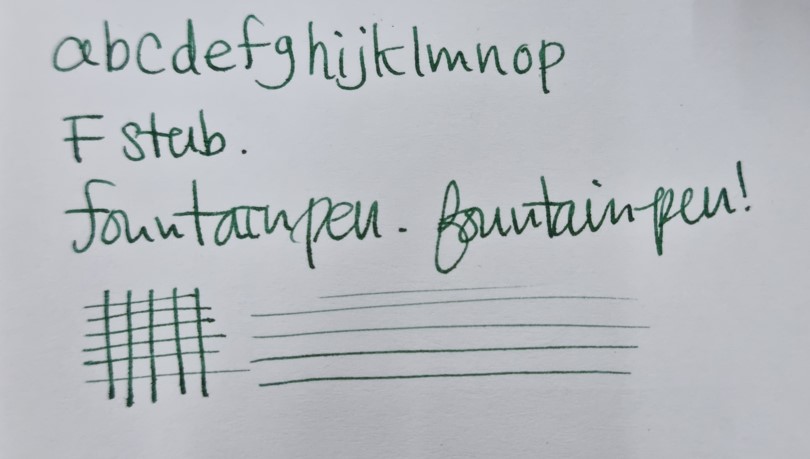 abcdefghijklmnop
F stub.
fountainpen. fountainpen!